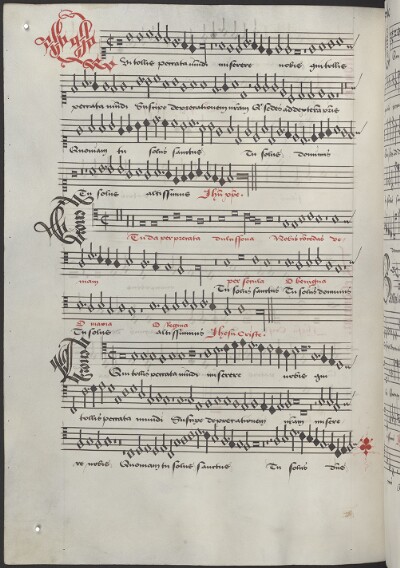 Qui tollis peccata mundi miserere nobis qui tollis
peccata mundi Suscipe deprecationem nram Q sedes ad dexterā pris
Quoniam tu solus sanctus Tu solus dominus
Tu solus altissimus Jhū xpe.
Tenor
Tu da per precata nobis
mam per secula O benigna
Tu solus sanctus Tu solus dominus
O maria O regina
Tu solus altissimus Jhesu Criste.
Contra
Qui tollis peccata mūdi miserere nobis qui
tollis peccata mundi Suscipe deprecationem nram misere
re nobis Quoniam tu solus sanctus Tu solus dūs